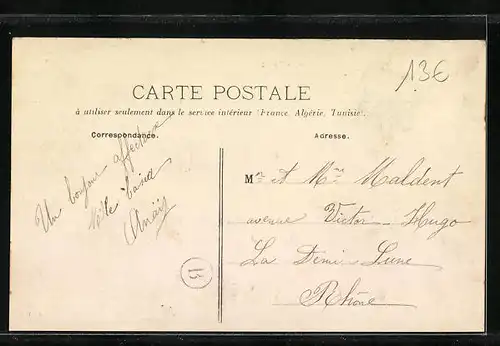 13€
CARTE POSTALE
à utiliser seulement dans le service intérieur (France, Algérie, Tunisie).
Correspondance.
Adresse.
Un bonjour affectueux
Anaïs
Mr et Mme Maldent
avenue Victor-Hugo
La Demi-Lune
Rhône